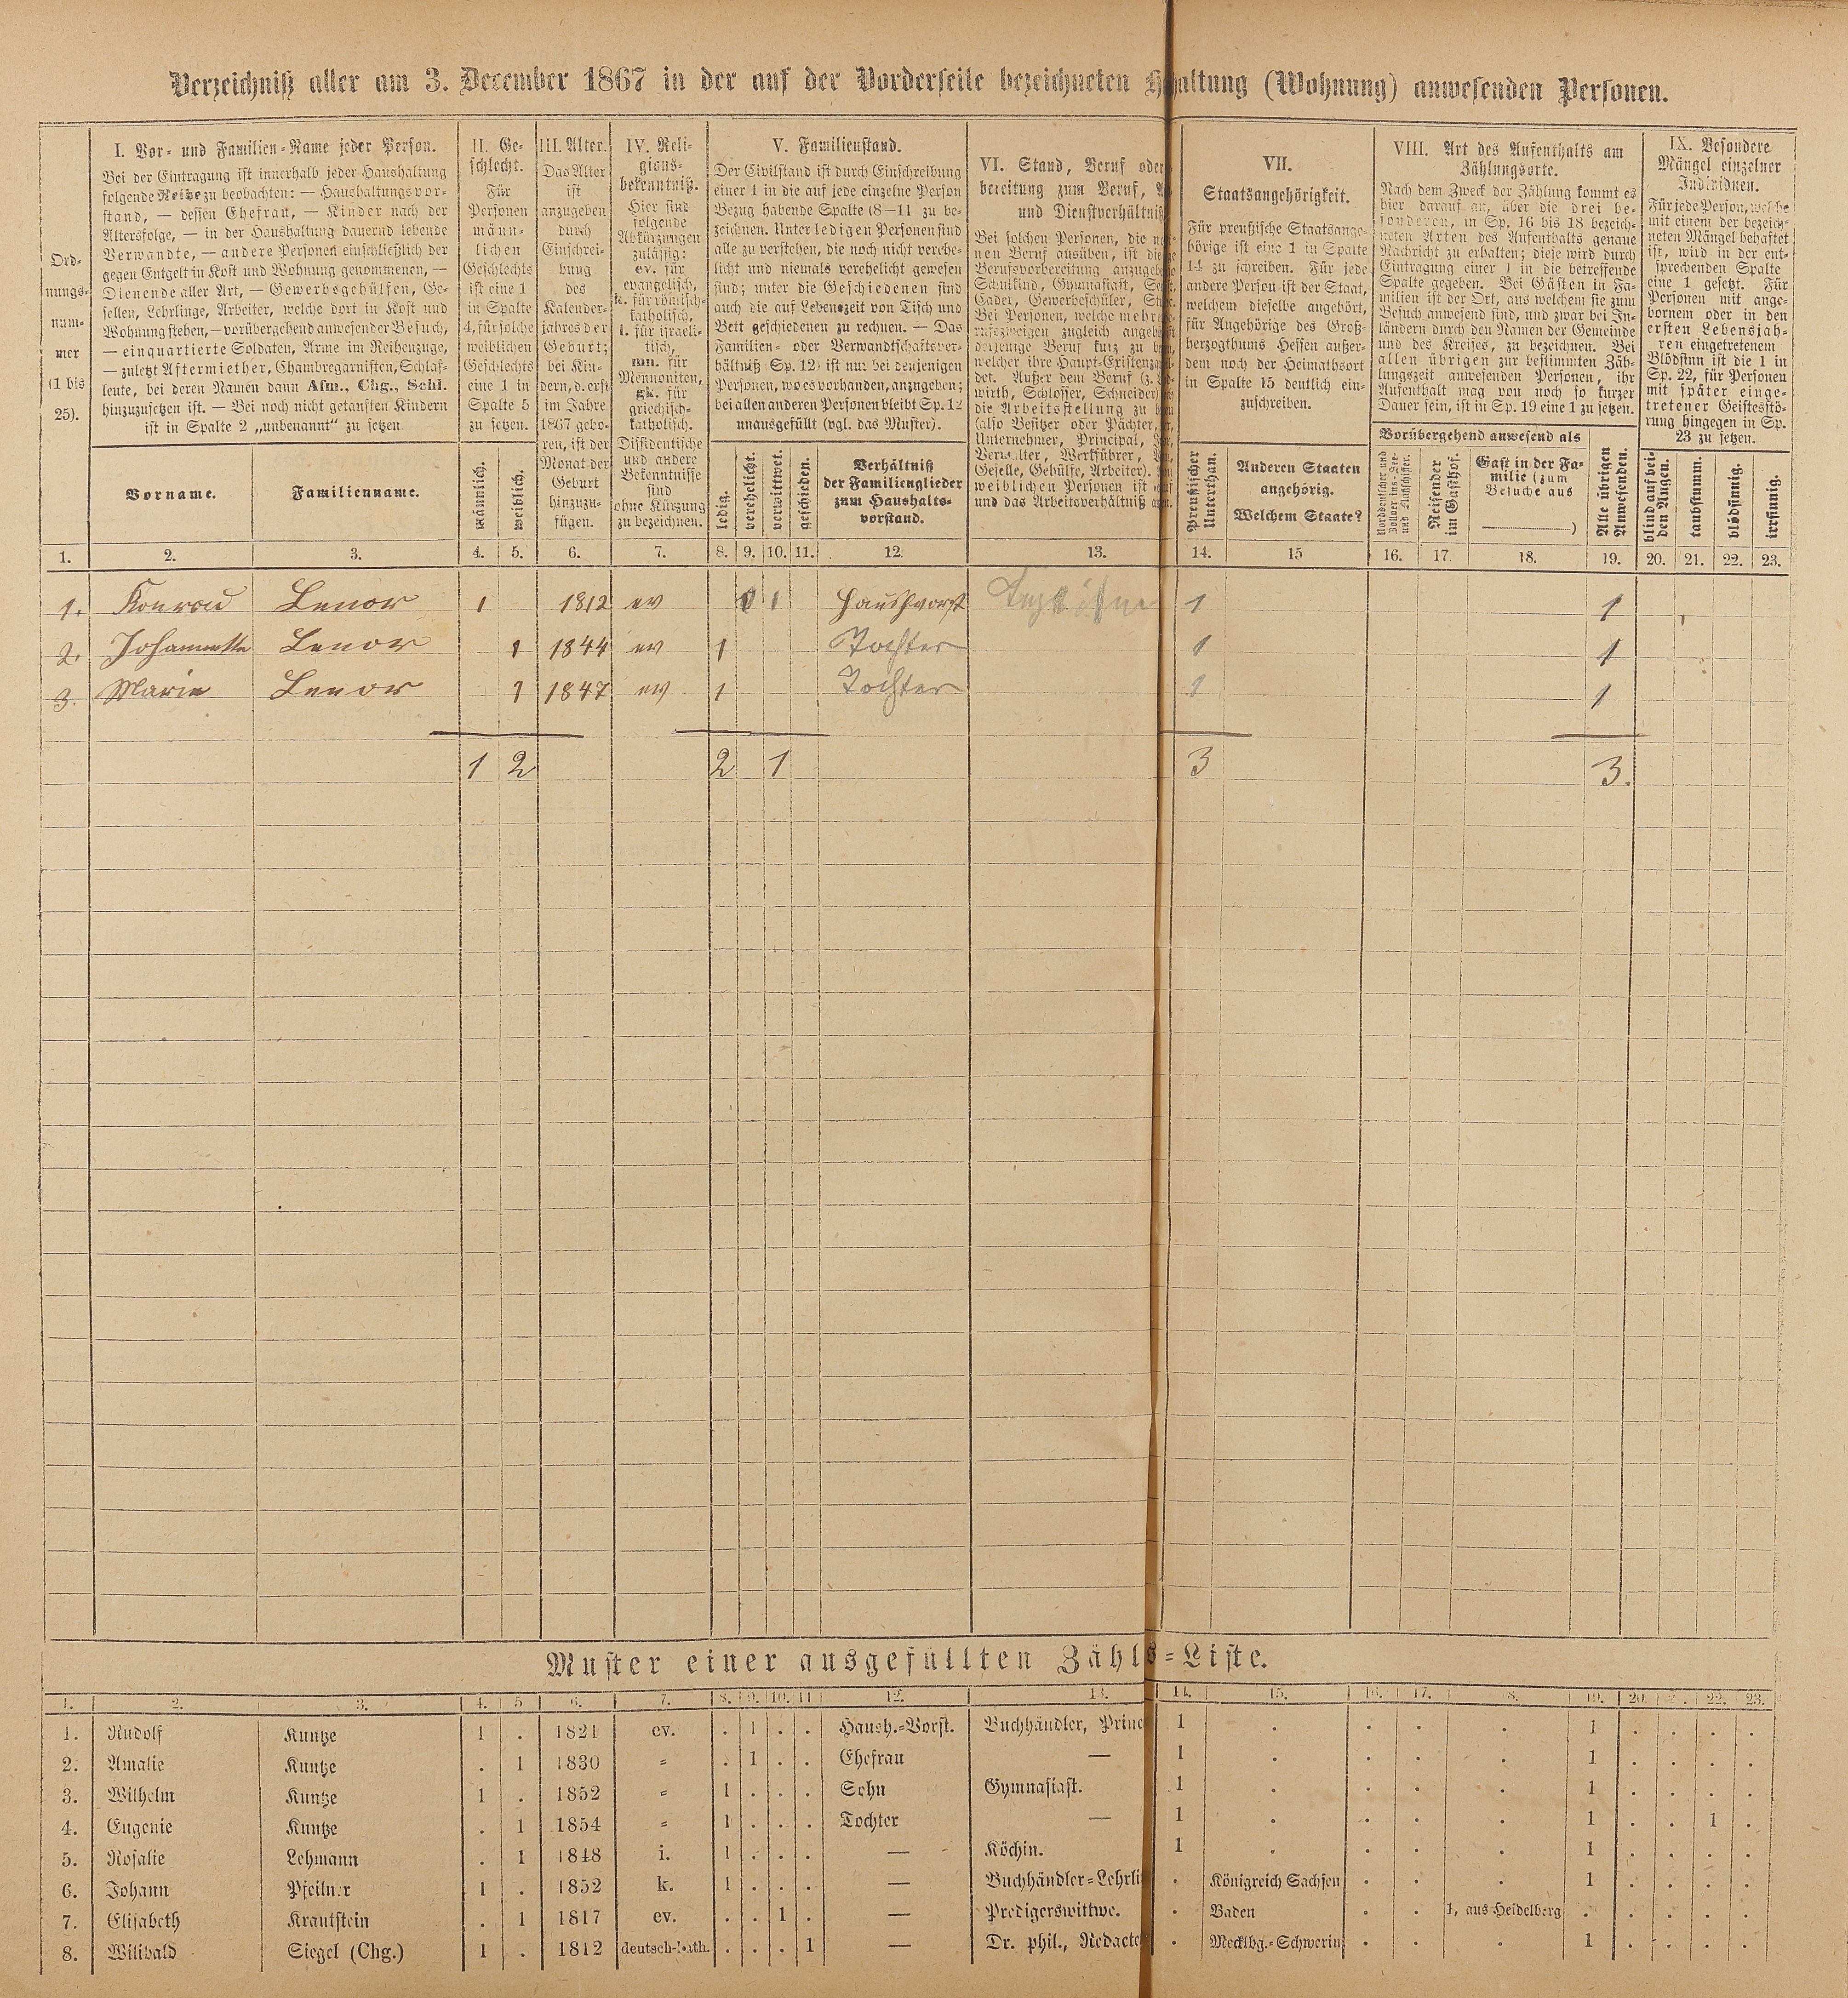 Verzeichniß aller am 3. December 1867 in der auf der Vorderseite bezeichneten haltung (Wohnung) anwesenden Personen.
Ord-
nungs-
num-
mer
(1 bis
25).
I. Vor- und Familien-Name jeder Person.
Bei der Eintragung ist innerhalb jeder Haushaltung
folgende Reihe zu beobachten: — Haushaltungsvor-
stand, — dessen Ehefrau, — Kinder nach der
Altersfolge, — in der Haushaltung dauernd lebende
Verwandte, — andere Personen einschließlich der
gegen Entgelt in Kost und Wohnung genommenen, —
Dienende aller Art, — Gewerbsgehülfen, Ge-
sellen, Lehrlinge, Arbeiter, welche dort in Kost und
Wohnung stehen, — vorübergehend anwesender Besuch,
— einquartierte Soldaten, Arme im Reihenzuge,
— zuletzt Aftermiether, Chambregarnisten, Schlaf-
leute, bei deren Namen dann Afm., Chg., Schl.
hinzuzusetzen ist. — Bei noch nicht getauften Kindern
ist in Spalte 2 „unbenannt" zu setzen.
Vorname.
Familienname.
II. Ge-
schlecht.
Für
Personen
männ-
lichen
Geschlechts
ist eine 1
in Spalte
4, für solche
weiblichen
Geschlechts
eine 1 in
Spalte 5
zu setzen.
männlich.
weiblich.
III. Alter.
Das Alter
ist
anzugeben
durch
Einschrei-
bung
des
Kalender-
jahres der
Geburt;
bei Kin-
dern, d. erst
im Jahre
1867 gebo-
ren, ist der
Monat der
Geburt
hinzuzu-
fügen.
IV. Reli-
gions-
bekenntniß.
Hier sind
folgende
Abkürzungen
zulässig:
ev. für
evangelisch,
k. für römisch-
katholisch,
i. für israeli-
tisch,
mn. für
Mennoniten,
gk. für
griechisch-
katholisch.
Dissidentische
und andere
Bekenntnisse
sind
ohne Kürzung
zu bezeichnen.
V. Familienstand.
Der Civilstand ist durch Einschreibung
einer 1 in die auf jede einzelne Person
Bezug habende Spalte (8—11 zu be-
zeichnen. Unter ledigen Personen sind
alle zu verstehen, die noch nicht verehe-
licht und niemals verehelicht gewesen
sind; unter die Geschiedenen sind
auch die auf Lebenszeit von Tisch und
Bett geschiedenen zu rechnen. — Das
Familien- oder Verwandtschaftsver-
hältniß (Sp. 12) ist nur bei denjenigen
Personen, wo es vorhanden, anzugeben;
bei allen anderen Personen bleibt Sp. 12
unausgefüllt (vgl. das Muster).
ledig.
verehelicht.
verwittwet.
geschieden.
Verhältniß
der Familienglieder
zum Haushalts-
vorstand.
VI. Stand, Beruf oder
bereitung zum Beruf,
und Dienstverhältniß
Bei solchen Personen, die
nen Beruf ausüben, ist die
Berufsvorbereitung anzugeb
Schulkind, Gymnasiast,
Cadet, Gewerbeschüler,
Bei Personen, welche mehre
rufszweigen zugleich angeh
derjenige Beruf kurz zu
welcher ihre Haupt-Existenz
det. Außer dem Beruf (z.
wirth, Schlosser, Schneider)
die Arbeitsstellung zu
(also Besitzer oder Pächter,
Unternehmer, Principal,
Verwalter, Werkführer,
Geselle, Gehülfe, Arbeiter).
weiblichen Personen ist
und das Arbeitsverhältniß
VII.
Staatsangehörigkeit.
Für preußische Staatsange-
hörige ist eine 1 in Spalte
14 zu schreiben. Für jede
andere Person ist der Staat,
welchem dieselbe angehört,
für Angehörige des Groß-
herzogthums Hessen außer-
dem noch der Heimathsort
in Spalte 15 deutlich ein-
zuschreiben.
Preußischer
Unterthan.
Anderen Staaten
angehörig.
Welchem Staate?
VIII. Art des Aufenthalts am
Zählungsorte.
Nach dem Zweck der Zählung kommt es
hier darauf an, über die drei be-
sonderen, in Sp. 16 bis 18 bezeich-
neten Arten des Aufenthalts genaue
Nachricht zu erhalten; diese wird durch
Eintragung einer 1 in die betreffende
Spalte gegeben. Bei Gästen in Fa-
milien ist der Ort, aus welchem sie zum
Besuch anwesend sind, und zwar bei In-
ländern durch den Namen der Gemeinde
und des Kreises, zu bezeichnen. Bei
allen übrigen zur bestimmten Zäh-
lungszeit anwesenden Personen, ihr
Aufenthalt mag von noch so kurzer
Dauer sein, ist in Sp. 19 eine 1 zu setzen.
Vorübergehend anwesend als
Norddeutscher und
Zollver ins-See-
und Flußschiffer.
Reisender
im Gasthof.
Gast in der Fa-
milie (zum
Besuche aus
)
Alle übrigen
Anwesenden.
IX. Besondere
Mängel einzelner
Individuen.
Für jede Person, welche
mit einem der bezeich-
neten Mängel behaftet
ist, wird in der ent-
sprechenden Spalte
eine 1 gesetzt. Für
Personen mit ange-
bornem oder in den
ersten Lebensjah-
ren eingetretenem
Blödsinn ist die 1 in
Sp. 22, für Personen
mit später einge-
tretener Geistesstö-
rung hingegen in Sp.
23 zu setzen.
blind auf bei-
den Augen.
taubstumm.
blödsinnig.
irrsinnig.
1. 2. 3. 4. 5. 6. 7. 8. 9. 10. 11. 12. 13. 14. 15 16. 17. 18. 19. 20. 21. 22. 23.
1. Konrad Lenor 1 1812 ev 1 Haushvorst 1 1
2. Johannette Lenor 1 1844 ev 1 Tochter 1 1
3. Marie Lenor 1 1847 ev 1 Tochter 1 1
1 2 2 1 3 3.
Muster einer ausgefüllten Zähl = Liste.
1. 2. 3. 4. 5 6. 7. 8. 9. 10. 11 12. 13. 14. 15. 16. 17. 8. 19. 20. 2 . 22. 23.
1. Rudolf Kuntze 1 . 1821 ev. . 1 . . Haush.-Vorst. Buchhändler, Princ 1 . . . . 1 . . . .
2. Amalie Kuntze . 1 1830 = . 1 . . Ehefrau — 1 . . . . 1 . . . .
3. Wilhelm Kuntze 1 . 1852 = 1 . . . Sohn Gymnasiast. 1 . . . . 1 . . . .
4. Eugenie Kuntze . 1 1854 = 1 . . . Tochter — 1 . . . . 1 . . 1 .
5. Rosalie Lehmann . 1 1848 i. 1 . . . — Köchin. 1 . . . . 1 . . . .
6. Johann Pfeilner 1 . 1852 k. 1 . . . — Buchhändler-Lehrli . Königreich Sachsen . . . 1 . . . .
7. Elisabeth Krautstein . 1 1817 ev. . . 1 . — Predigerswittwe. . Baden . . 1, aus Heidelberg . . . . .
8. Wilibald Siegel (Chg.) 1 . 1812 deutsch-kath. . . . 1 — Dr. phil., Redacte . Mecklbg.-Schwerin . . . 1 . . . .